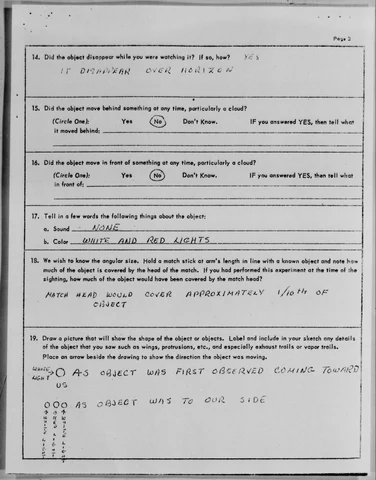 Page 3
14. Did the object disappear while you were watching it? If so, how? YES
IT DISAPPEAR OVER HORIZEN
15. Did the object move behind something at any time, particularly a cloud?
(Circle One): Yes No Don't Know. IF you answered YES, then tell what
it moved behind:
16. Did the object move in front of something at any time, particularly a cloud?
(Circle One): Yes No Don't Know. IF you answered YES, then tell what
in front of:
17. Tell in a few words the following things about the object:
a. Sound NONE
b. Color WHITE AND RED LIGHTS
18. We wish to know the angular size. Hold a match stick at arm's length in line with a known object and note how
much of the object is covered by the head of the match. If you had performed this experiment at the time of the
sighting, how much of the object would have been covered by the match head?
MATCH HEAD WOULD COVER APPROXIMATELY 1/10th OF
OBJECT
19. Draw a picture that will show the shape of the object or objects. Label and include in your sketch any details
of the object that you saw such as wings, protrusions, etc., and especially exhaust trails or vapor trails.
Place an arrow beside the drawing to show the direction the object was moving.
WHITE
LIGHT AS OBJECT WAS FIRST OBSERVED COMING TOWARD
US
AS OBJECT WAS TO OUR SIDE
WHITE LIGHT
RED LIGHT
WHITE LIGHT